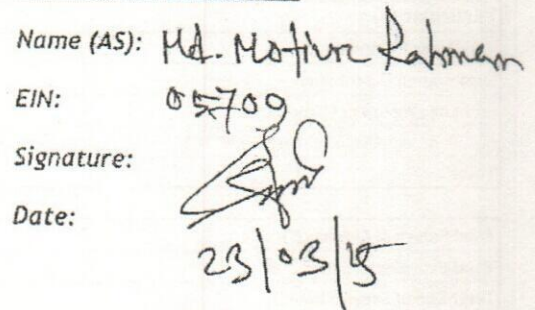 Name (AS): Md. Motiur Rahman
EIN: 05709
Signature:
Date:
23/03/15